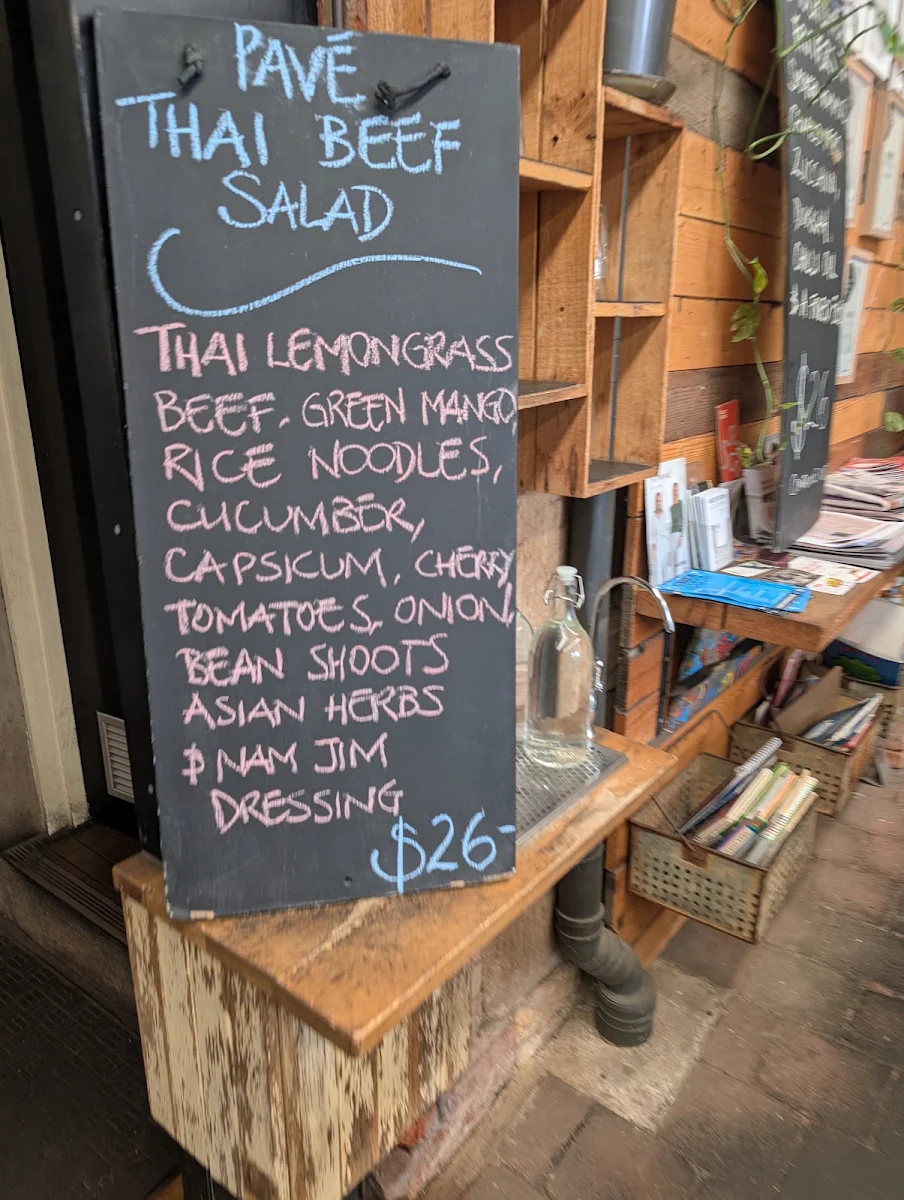 PAVÉ
THAI BEEF
SALAD
THAI LEMONGRASS
BEEF, GREEN MANGO
RICE NOODLES,
CUCUMBER,
CAPSICUM, CHERRY
TOMATOES, ONION,
BEAN SHOOTS
ASIAN HERBS
& NAM JIM
DRESSING
$26-
CHILLI OIL